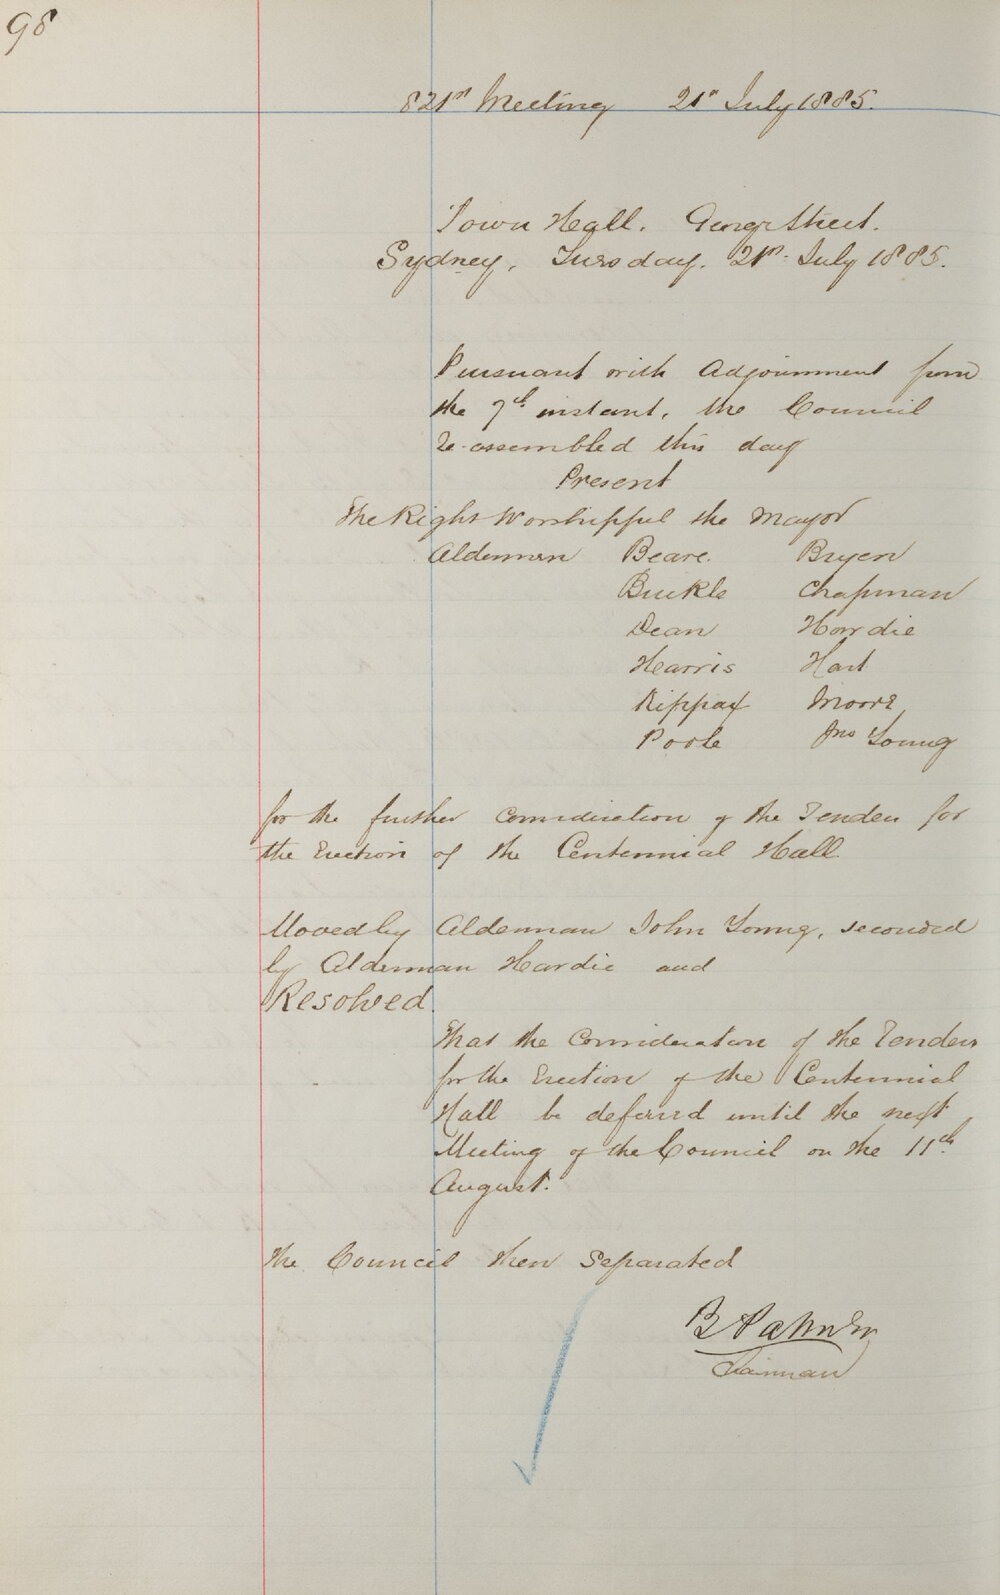 98
821st Meeting 21st July 1885.
Town Hall. George Street.
Sydney, Tuesday. 21st July 1885.
Pursuant with Adjournment from
the 7th instant, the Council
Re-assembled this day
Present
The Right Worshipful the Mayor
Alderman Beare. Bryen
Buckle Chapman
Dean Hordie
Harris Hart
Kippax Moore
Poole Jno Young
for the further consideration of the Tenders for
the Erection of the Centennial Hall.
Moved by Alderman John Young, seconded
by Alderman Hardie and
Resolved
That the consideration of the Tenders
for the Erection of the Centennial
Hall be deferred until the next
Meeting of the Council on the 11th
August.
The Council then Separated
Chairman